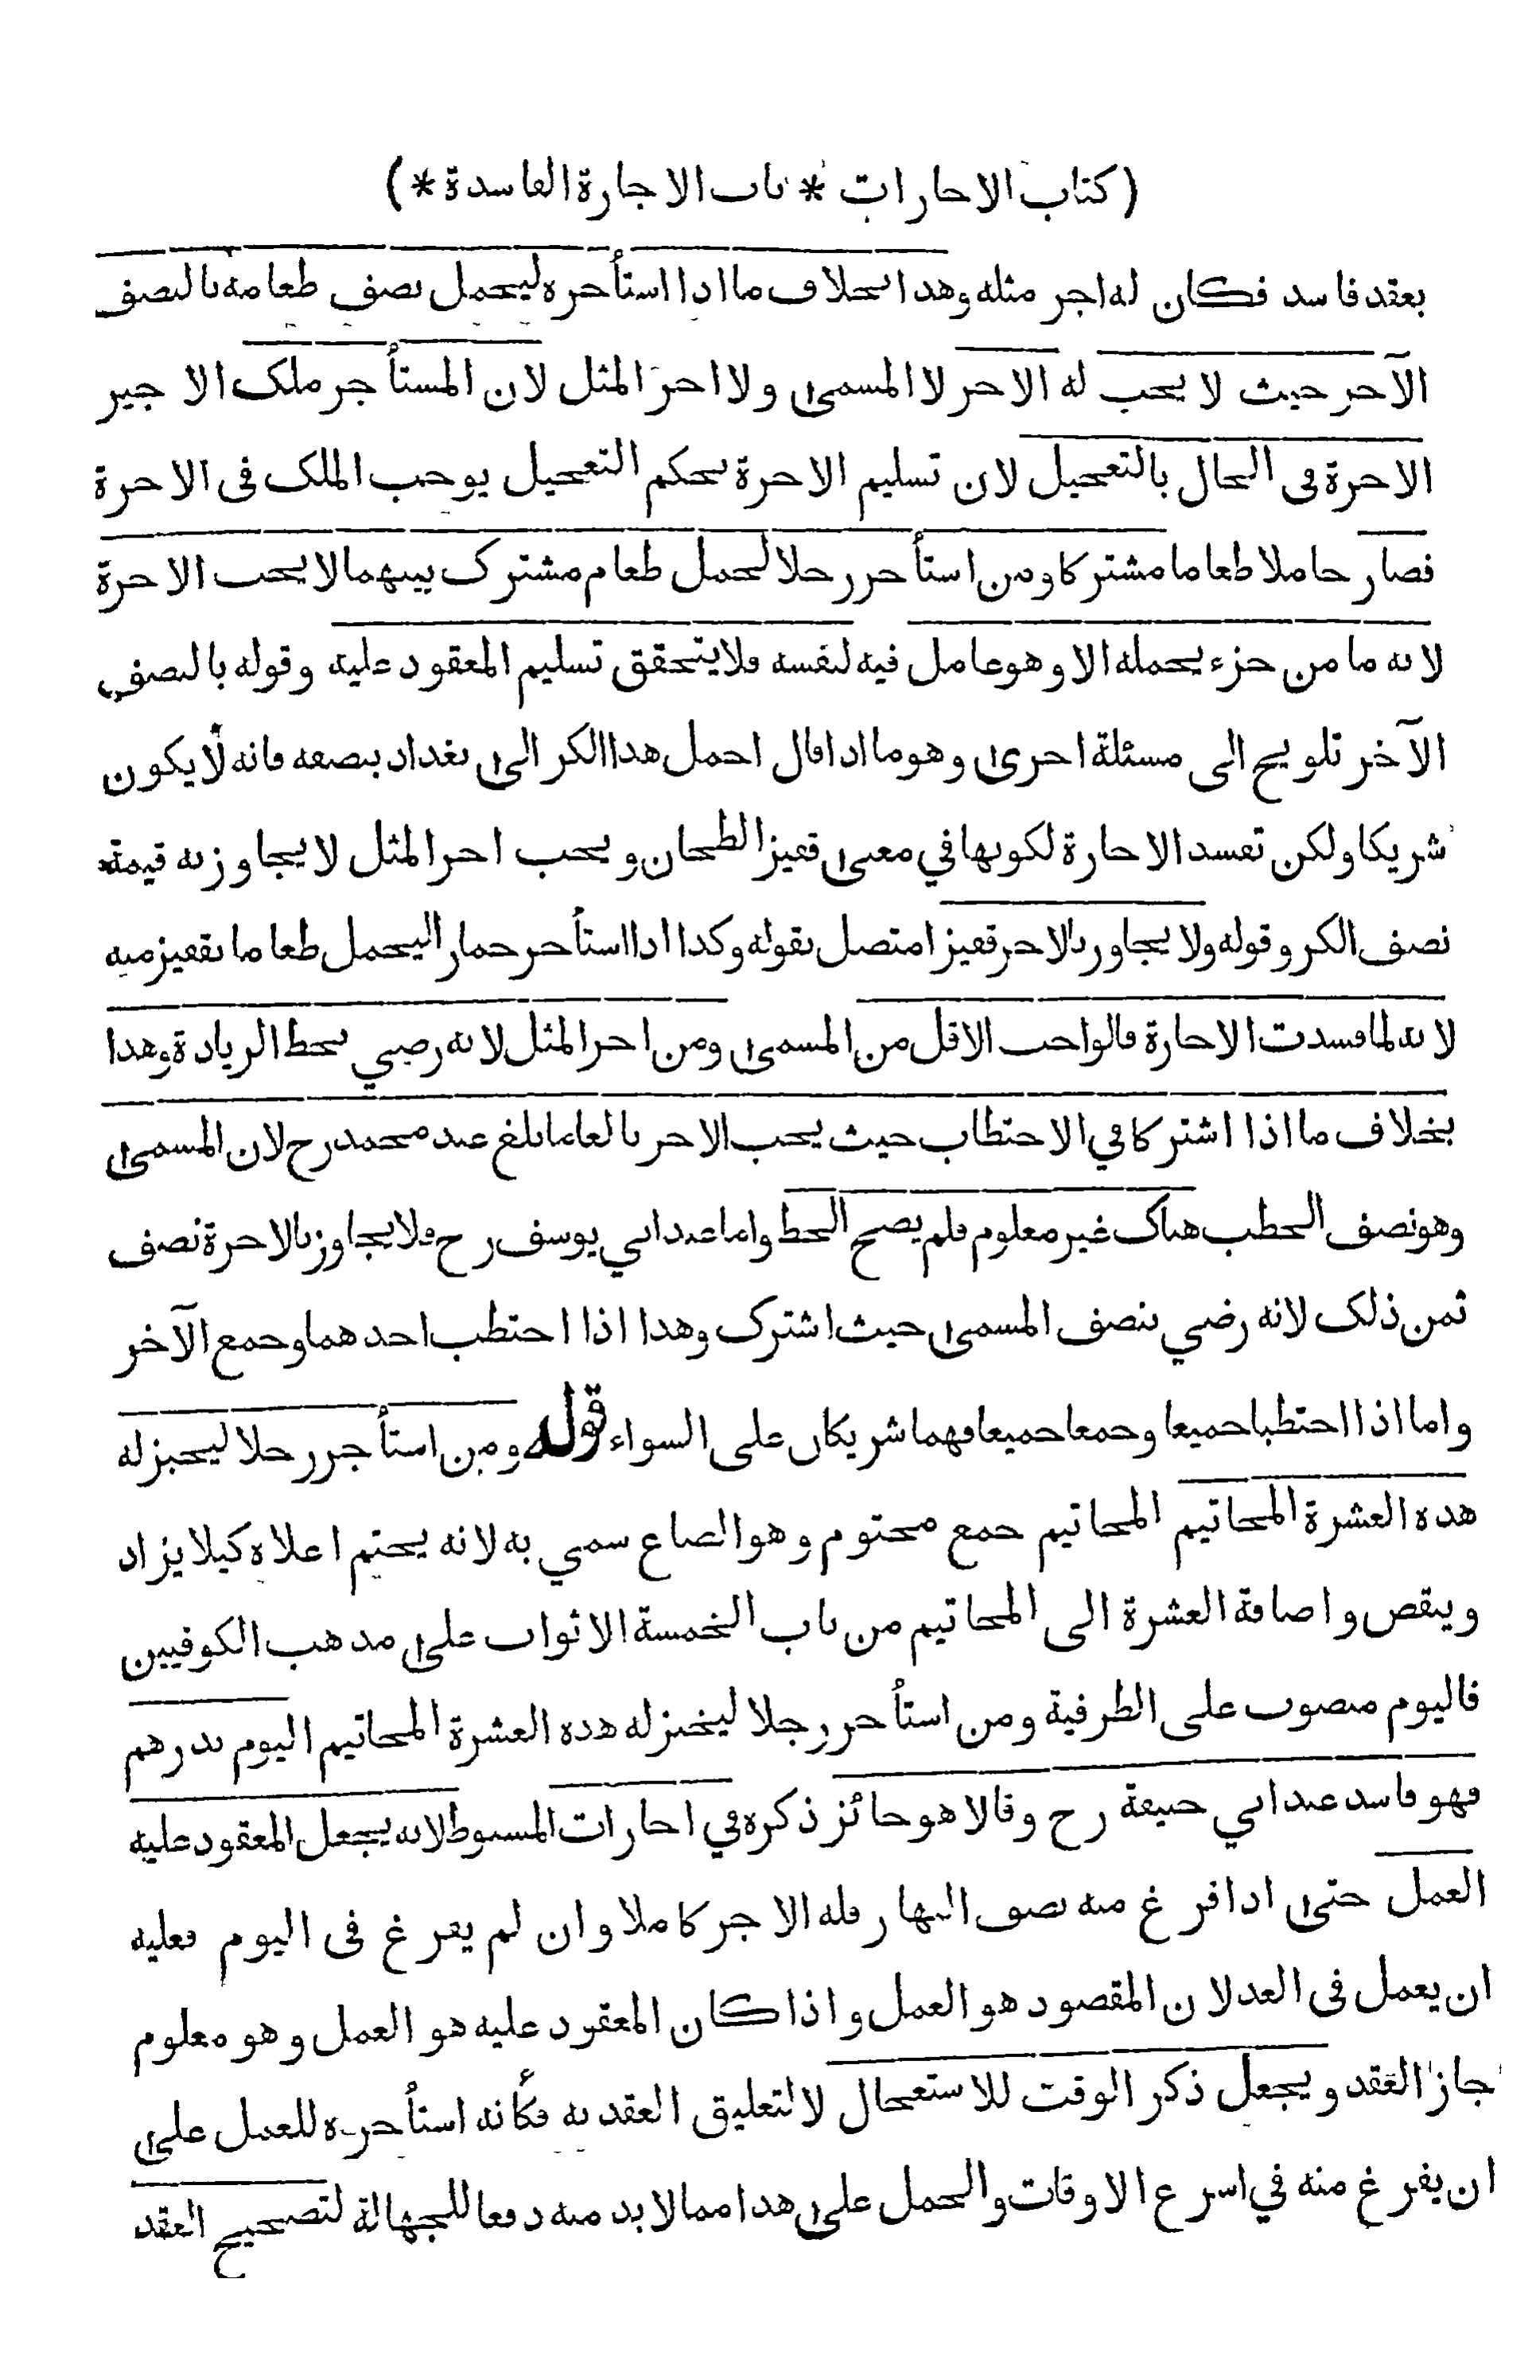 (كتاب الاجارات * باب الاجارة الفاسدة *)
بعقد فاسد فكان له اجر مثله وهذا بخلاف ما اذا استأجره ليحمل نصف طعامه بالنصف
الآخر حيث لا يجب له الاجر لا المسمى ولا اجر المثل لان المستأجر ملك الاجير
الاجرة في الحال بالتعجيل لان تسليم الاجرة بحكم التعجيل يوجب الملك في الاجرة
فصار حاملا طعاما مشتركا ومن استأجر رجلا لحمل طعام مشترك بينهما لا يجب الاجرة
لانه ما من جزء يحمله الا وهو عامل فيه لنفسه فلا يتحقق تسليم المعقود عليه وقوله بالنصف
الآخر تلويح الى مسئلة اخرى وهو ما اذا قال احمل هذا الكر الى بغداد بنصفه فانه لا يكون
شريكا ولكن تفسد الاجارة لكونها في معنى قفيز الطحان ويجب اجر المثل لا يجاوز به قيمة
نصف الكر وقوله ولا يجاوز بالاجر قفيزا متصل بقوله وكذا اذا استأجر حمارا ليحمل طعاما بقفيز منه
لانه لما فسدت الاجارة فالواجب الاقل من المسمى ومن اجر المثل لانه رضي بحط الزيادة وهذا
بخلاف ما اذا اشتركا في الاحتطاب حيث يجب الاجر بالغا ما بلغ عند محمد رح لان المسمى
وهو نصف الحطب هناك غير معلوم فلم يصح الحط واما عند ابي يوسف رح فلا يجاوز بالاجرة نصف
ثمن ذلك لانه رضي بنصف المسمى حيث اشترك وهذا اذا احتطب احدهما وجمع الآخر
واما اذا احتطبا جميعا وجمعا جميعا فهما شريكان على السواء قوله ومن استأجر رجلا ليخبز له
هذه العشرة المخاتيم المخاتيم جمع مختوم وهو الصاع سمي به لانه يختم اعلاه كيلا يزاد
وينقص واضافة العشرة الى المخاتيم من باب الخمسة الاثواب على مذهب الكوفيين
فاليوم منصوب على الظرفية ومن استأجر رجلا ليخبز له هذه العشرة المخاتيم اليوم بدرهم
فهو فاسد عند ابي حنيفة رح وقالا هو جائز ذكره في اجارات المبسوط لانه يجعل المعقود عليه
العمل حتى اذا فرغ منه نصف النهار فله الاجر كاملا وان لم يفرغ في اليوم فعليه
ان يعمل في الغد لان المقصود هو العمل واذا كان المعقود عليه هو العمل وهو معلوم
جاز العقد ويجعل ذكر الوقت للاستعجال لا لتعليق العقد به فكأنه استأجره للعمل على
ان يفرغ منه في اسرع الاوقات والحمل على هذا مما لا بد منه دفعا للجهالة لتصحيح العقد